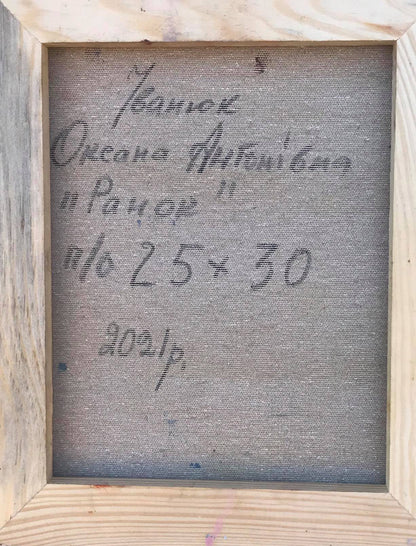 Іванюк
Оксана Антонівна
"Ранок"
п/о 25 × 30
2021р.